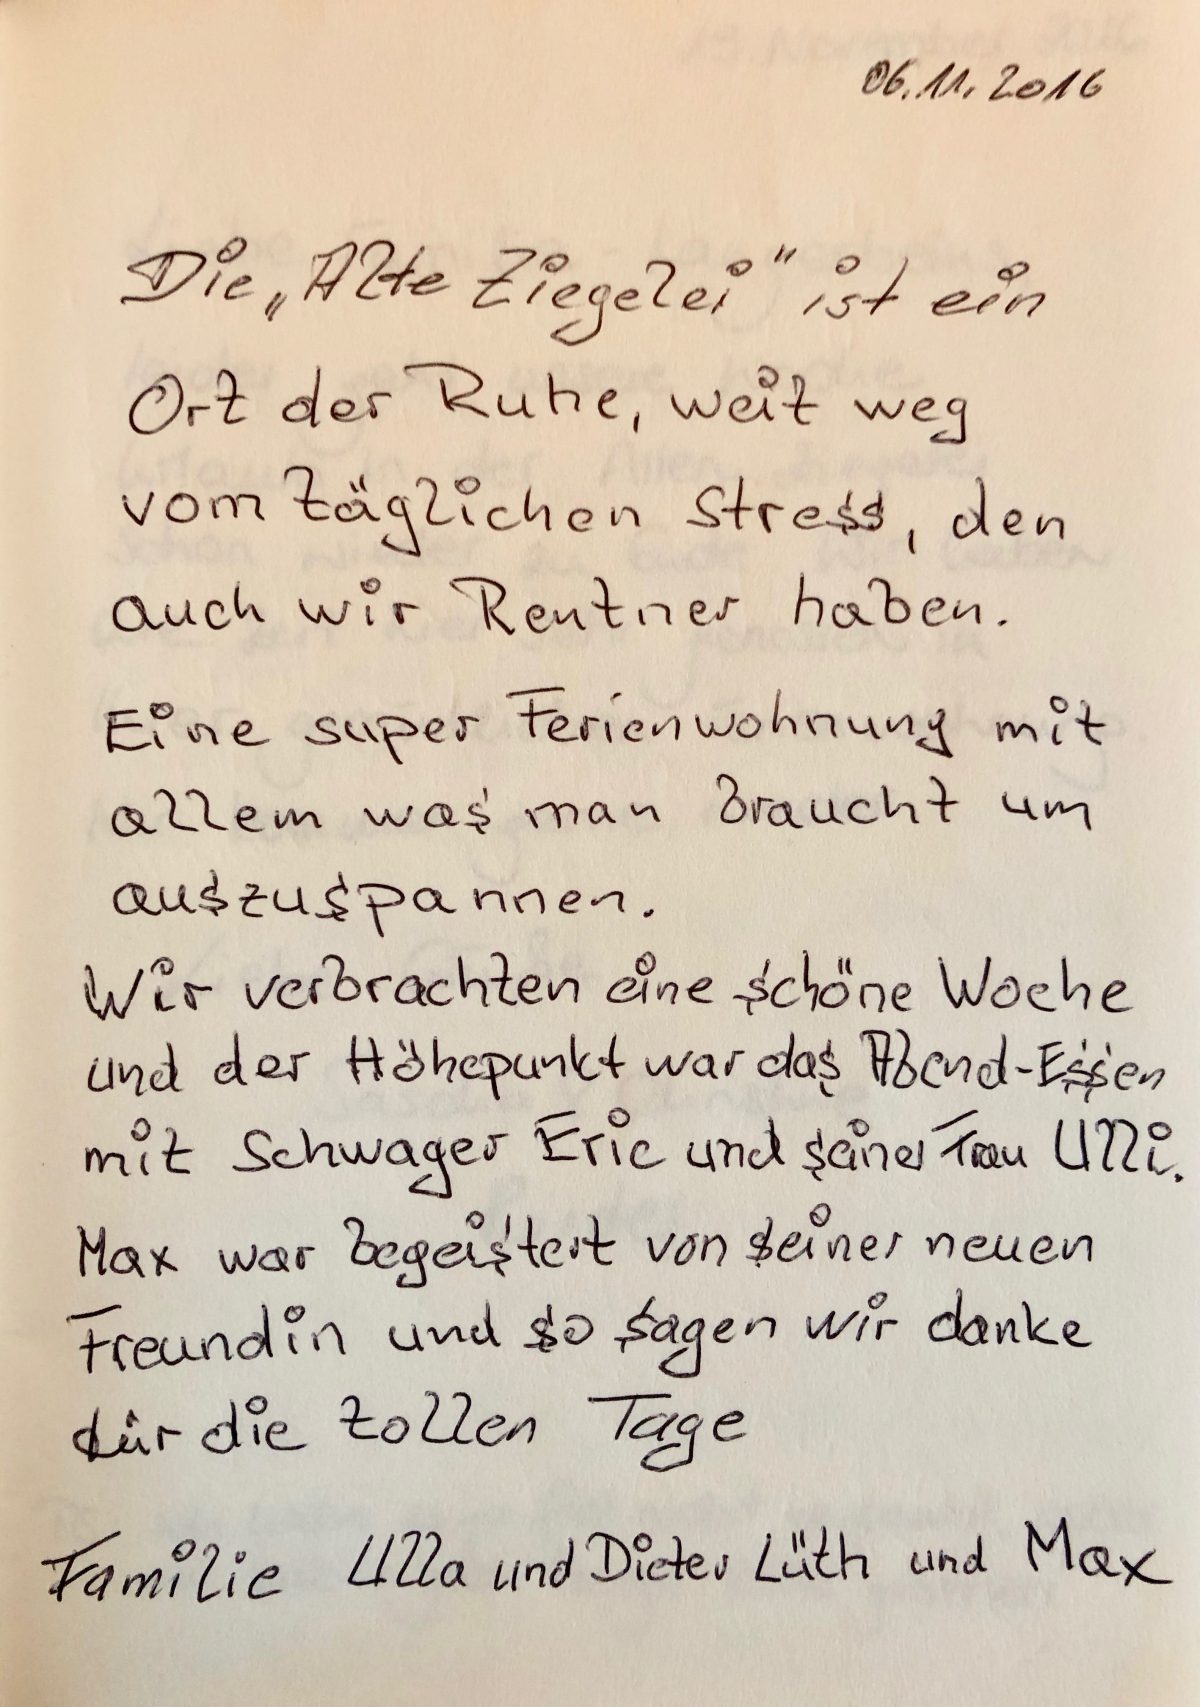 06.11.2016
Die „Alte Ziegelei" ist ein
Ort der Ruhe, weit weg
vom täglichen Stress, den
auch wir Rentner haben.
Eine super Ferienwohnung mit
allem was man braucht um
auszuspannen.
Wir verbrachten eine schöne Woche
und der Höhepunkt war das Abend-Essen
mit Schwager Eric und seiner Frau Ulli.
Max war begeistert von seiner neuen
Freundin und so sagen wir danke
für die tollen Tage
Familie Ulla und Dieter Lüth und Max